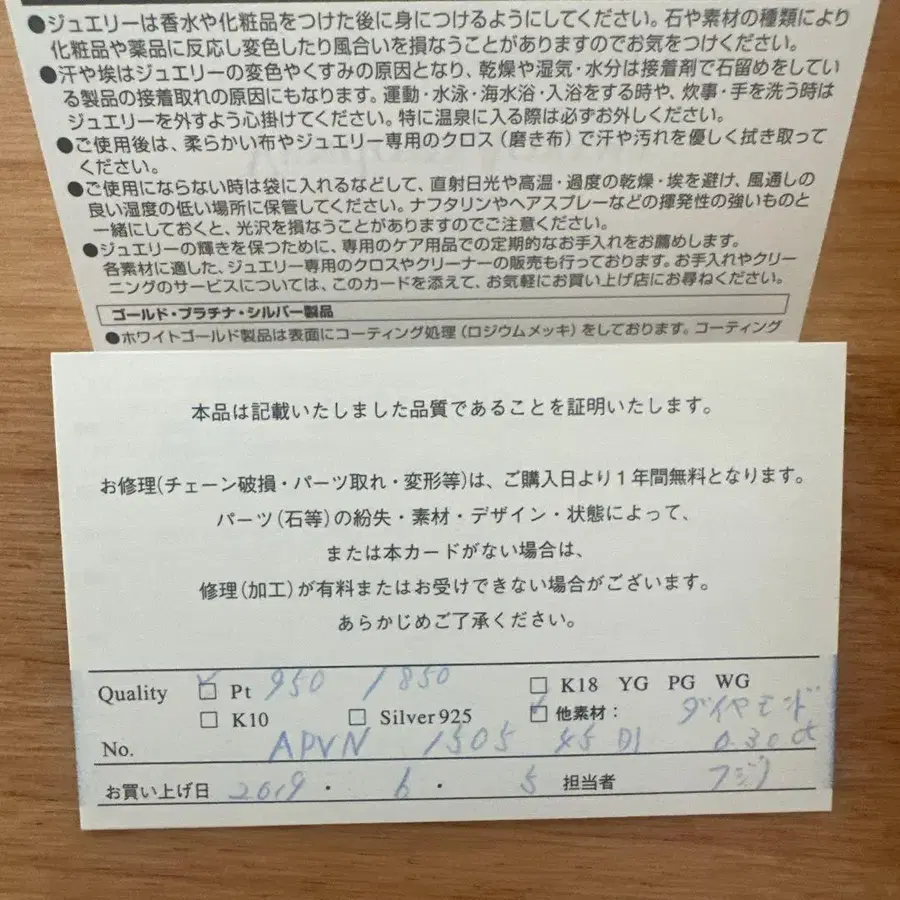 ●ジュエリーは香水や化粧品をつけた後に身につけるようにしてください。石や素材の種類により
化粧品や薬品に反応し変色したり風合いを損なうことがありますのでお気をつけください。
●汗や埃はジュエリーの変色やくすみの原因となり、乾燥や湿気・水分は接着剤で石留めをしてい
る製品の接着取れの原因にもなります。運動・水泳・海水浴・入浴をする時や、炊事・手を洗う時は
ジュエリーを外すよう心掛けてください。特に温泉に入る際は必ずお外しください。
●ご使用後は、柔らかい布やジュエリー専用のクロス（磨き布）で汗や汚れを優しく拭き取って
ください。
●ご使用にならない時は袋に入れるなどして、直射日光や高温・過度の乾燥・埃を避け、風通しの
良い湿度の低い場所に保管してください。ナフタリンやヘアスプレーなどの揮発性の強いものと
一緒にしておくと、光沢を損なうことがありますのでご注意ください。
●ジュエリーの輝きを保つために、専用のケア用品での定期的なお手入れをお薦めします。
各素材に適した、ジュエリー専用のクロスやクリーナーの販売も行っております。お手入れやクリー
ニングのサービスについては、このカードを添えて、お気軽にお買い上げ店にお尋ねください。
ゴールド・プラチナ・シルバー製品
●ホワイトゴールド製品は表面にコーティング処理（ロジウムメッキ）をしております。コーティング
本品は記載いたしました品質であることを証明いたします。
お修理(チェーン破損・パーツ取れ・変形等)は、ご購入日より1年間無料となります。
パーツ(石等)の紛失・素材・デザイン・状態によって、
または本カードがない場合は、
修理(加工)が有料またはお受けできない場合がございます。
あらかじめご了承ください。
Quality □ Pt 950 /850 □ K18 YG PG WG
□ K10 □ Silver925 □ 他素材： ダイヤモンド
No. APVN 1505 45 DI 0.30ct
お買い上げ日 2019 ・ 6 ・ 5 担当者 フジノ